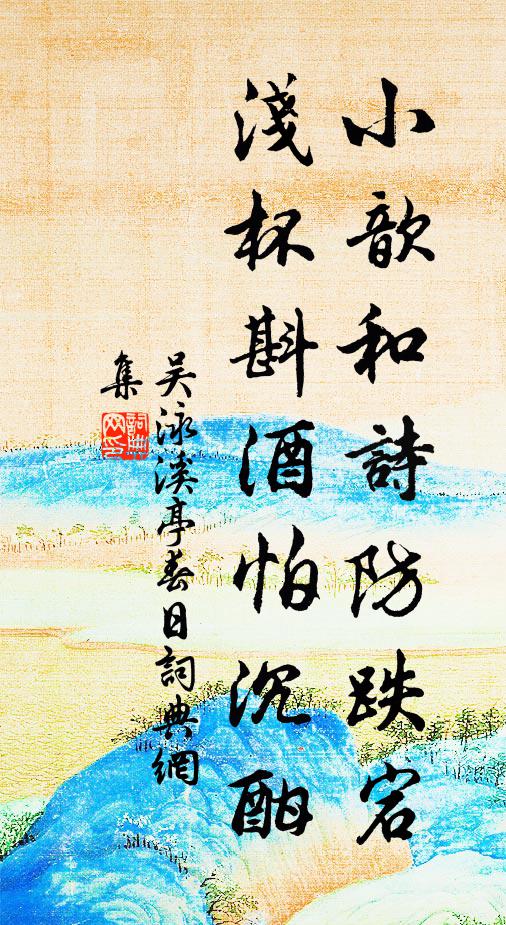 小歌和詩防跌宕
淺杯斟酒怕沉酣
吴泳溪亭春日詞典網
集
詞典網印